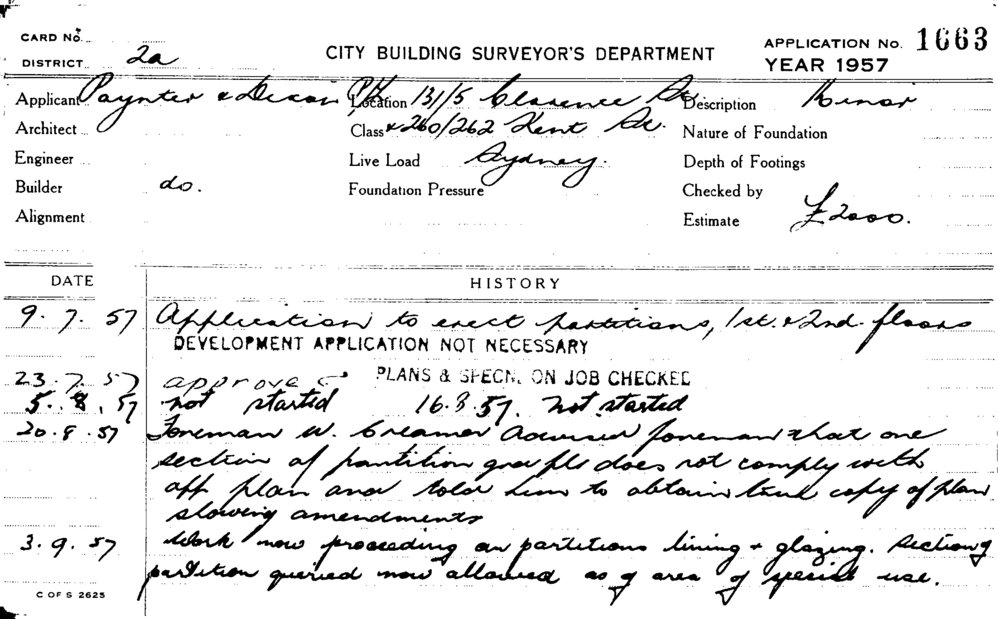 CARD No.
DISTRICT 2a
CITY BUILDING SURVEYOR'S DEPARTMENT
APPLICATION No. 1663
YEAR 1957
Applicant Paynter & Dixon P/L Location 131/5 Clarence St. Description Minor
Architect Class & 260/262 Kent St. Nature of Foundation
Engineer Live Load Sydney. Depth of Footings
Builder do. Foundation Pressure Checked by
Alignment Estimate £2000.
DATE HISTORY
9. 7. 57 Application to erect partitions, 1st. & 2nd. floors
DEVELOPMENT APPLICATION NOT NECESSARY
23. 7. 57 approved PLANS & SPECN. ON JOB CHECKED
5. 8. 57 not started 16.8.57. not started
20. 8. 57 Foreman W. Creamer advised foreman that one
section of partition does not comply with
app plan and told him to obtain true copy of plan
showing amendments
3. 9. 57 Work now proceeding on partitions lining + glazing. Section of
partition queried now allowed as of area of special use.
C OF S 2625